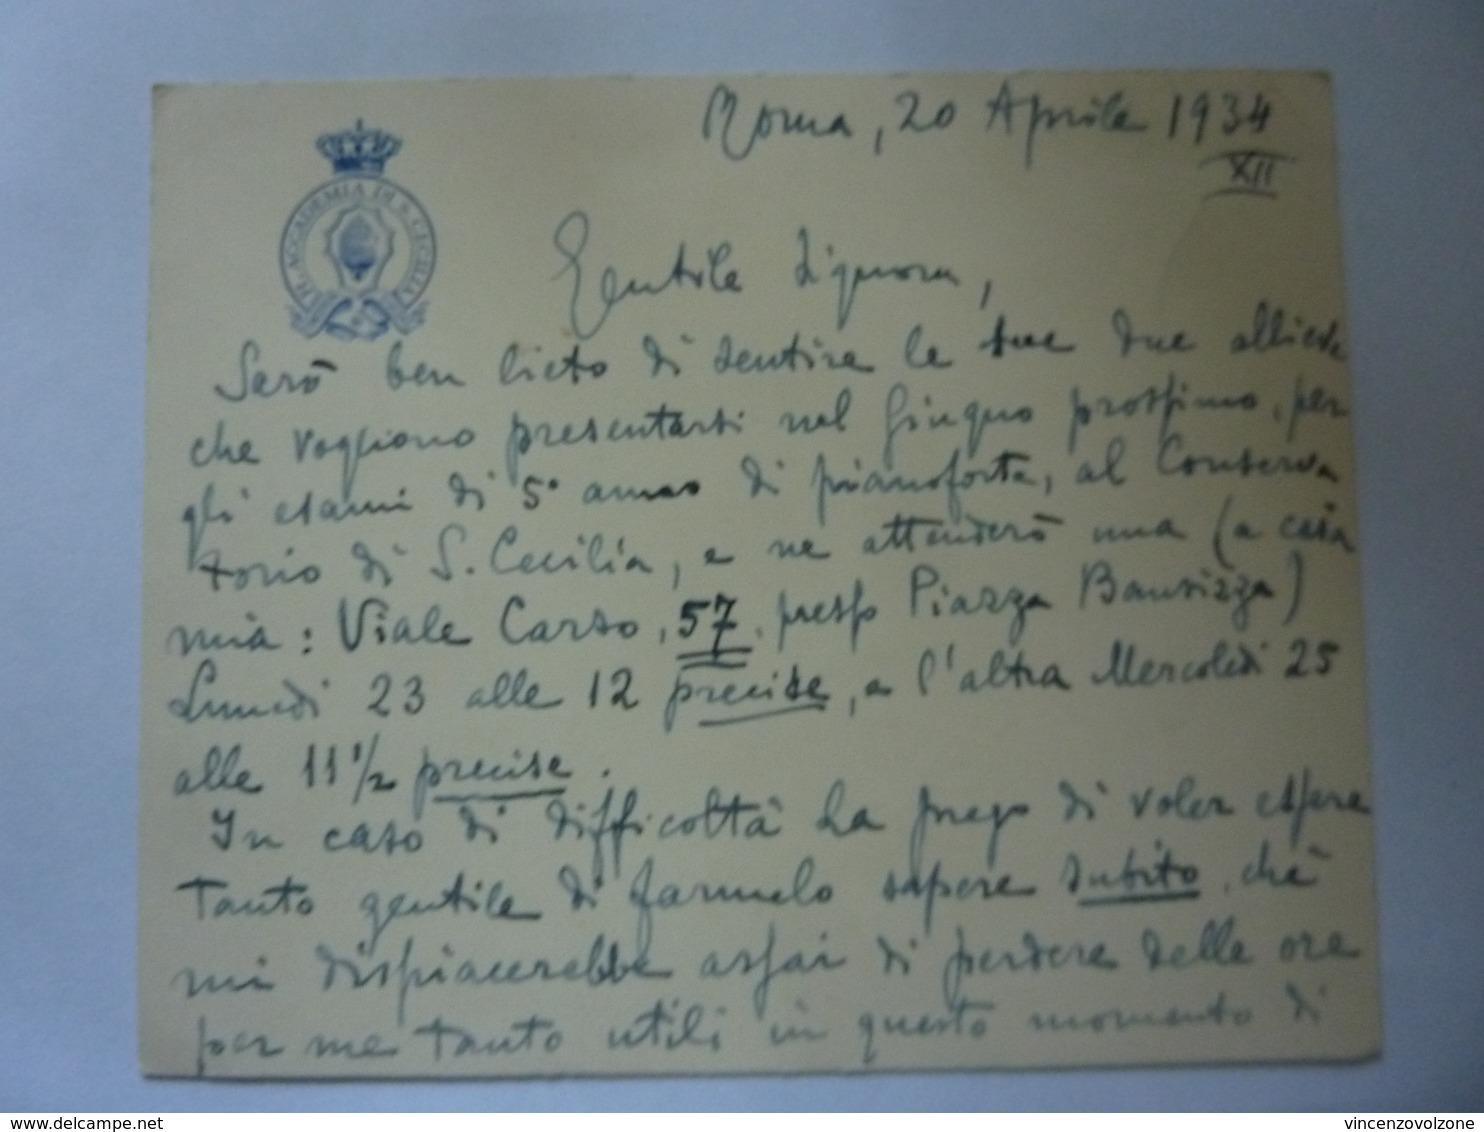 Roma, 20 Aprile 1934
XII
R. ACCADEMIA DI S. CECILIA
Gentile Signora,
Sarò ben lieto di sentire le sue due allieve
che vogliono presentarsi nel Giugno prossimo, per
gli esami di 5° anno di pianoforte, al Conserva
torio di S. Cecilia, e ne attenderò una (a casa
mia: Viale Carso, 57, presso Piazza Bainsizza)
Lunedì 23 alle 12 precise, e l'altra Mercoledì 25
alle 11 1/2 precise.
In caso di difficoltà La prego di voler essere
tanto gentile di farmelo sapere subito, chè
mi dispiacerebbe assai di perdere delle ore
per me tanto utili in questo momento di
delcampe.net
vincenzovolzone